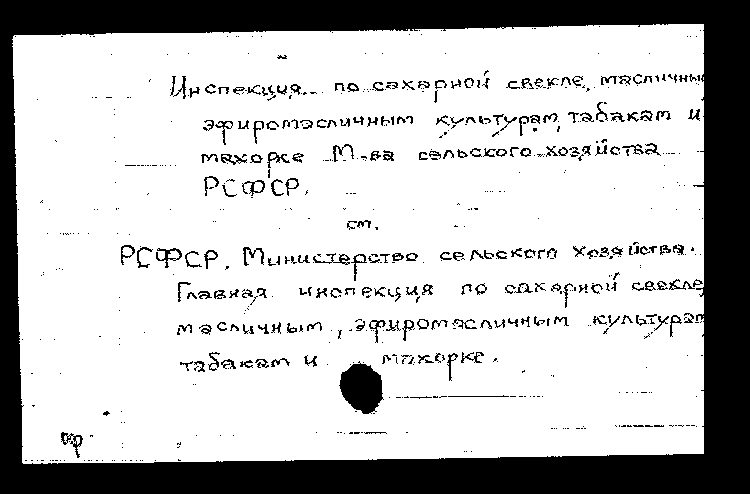 Инспекция по сахарной свекле, масличным
эфиромасличным культурам, табакам и
махорке М-ва сельского хозяйства
РСФСР.
см.
РСФСР. Министерство сельского хозяйства.
Главная инспекция по сахарной свекле,
масличным, эфиромасличным культурам
табакам и махорке.